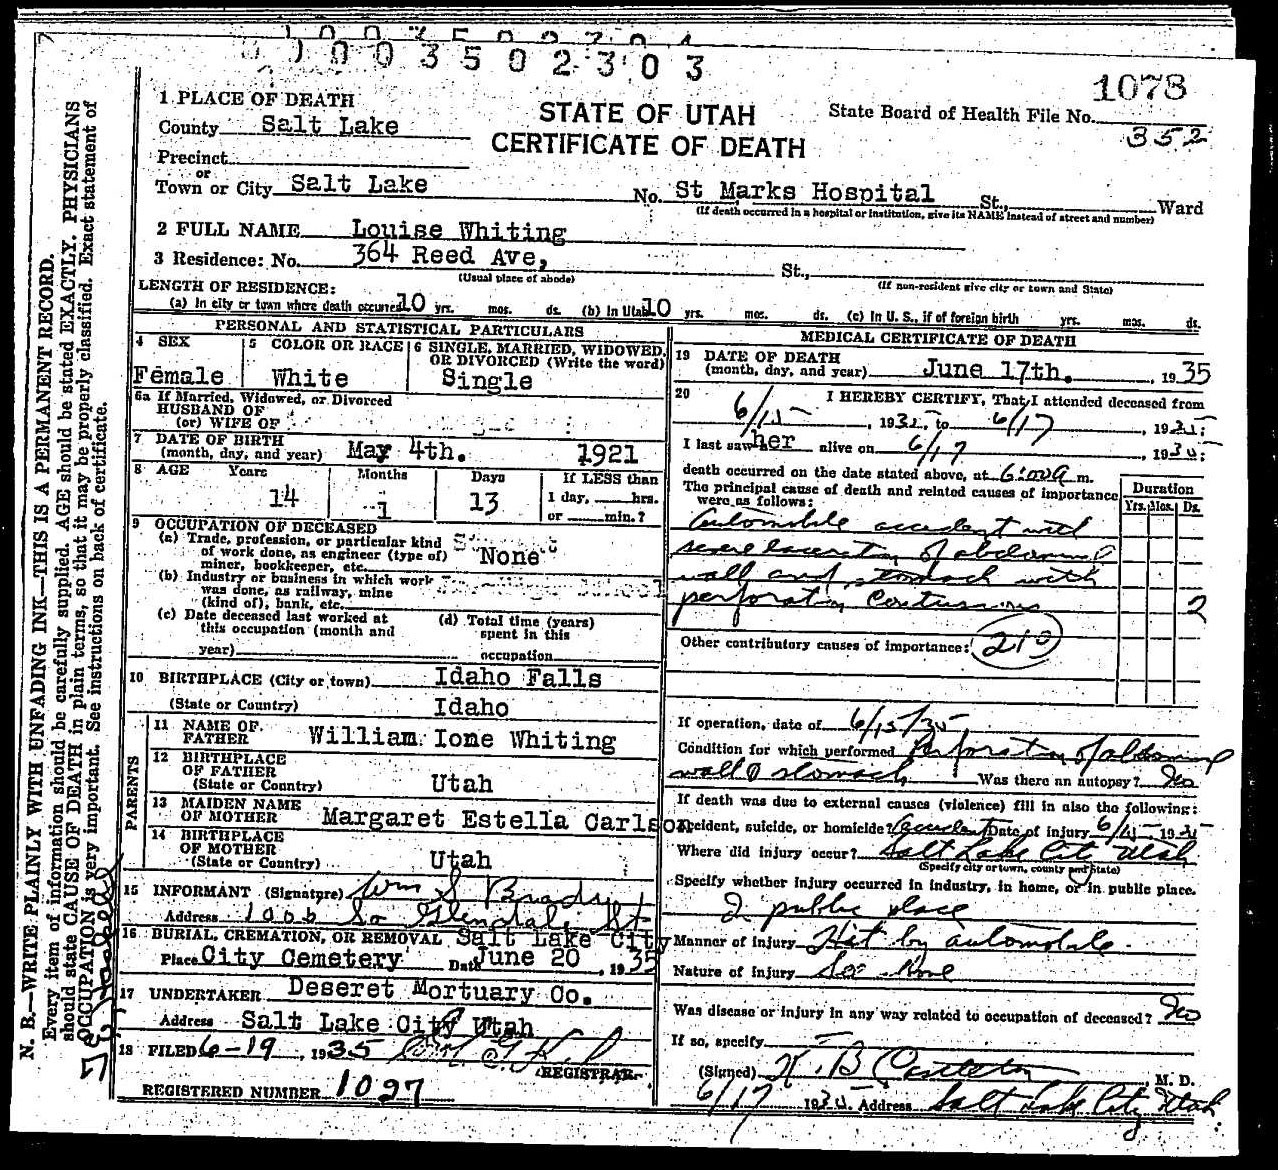 1003502303
1078
1 PLACE OF DEATH
STATE OF UTAH
CERTIFICATE OF DEATH
State Board of Health File No.
352
County Salt Lake
Precinct
or
Town or City Salt Lake No. St Marks Hospital St., Ward
(If death occurred in a hospital or institution, give its NAME instead of street and number)
2 FULL NAME Louise Whiting
3 Residence: No. 364 Reed Ave, St.,
(Usual place of abode) (If non-resident give city or town and State)
LENGTH OF RESIDENCE:
(a) In city or town where death occurred 10 yrs. mos. ds. (b) In Utah 10 yrs. mos. ds. (c) In U. S., if of foreign birth yrs. mos. ds.
PERSONAL AND STATISTICAL PARTICULARS
4 SEX
Female
5 COLOR OR RACE
White
6 SINGLE, MARRIED, WIDOWED,
OR DIVORCED (Write the word)
Single
6a If Married, Widowed, or Divorced
HUSBAND OF
(or) WIFE OF
7 DATE OF BIRTH
(month, day, and year) May 4th. 1921
8 AGE Years Months Days If LESS than
14 1 13 1 day, hrs.
or min.?
9 OCCUPATION OF DECEASED
(a) Trade, profession, or particular kind
of work done, as engineer (type of)
miner, bookkeeper, etc. "None"
(b) Industry or business in which work
was done, as railway, mine
(kind of), bank, etc. School
(c) Date deceased last worked at
this occupation (month and
year)
(d) Total time (years)
spent in this
occupation
10 BIRTHPLACE (City or town) Idaho Falls
(State or Country) Idaho
PARENTS
11 NAME OF
FATHER William Ione Whiting
12 BIRTHPLACE
OF FATHER
(State or Country) Utah
13 MAIDEN NAME
OF MOTHER Margaret Estella Carlson
14 BIRTHPLACE
OF MOTHER
(State or Country) Utah
15 INFORMANT (Signature) Wm S Brady
Address 1006 So Glendale St
16 BURIAL, CREMATION, OR REMOVAL Salt Lake City
Place City Cemetery Date June 20, 1935
17 UNDERTAKER Deseret Mortuary Co.
Address Salt Lake City Utah
18 FILED 6-19, 1935
REGISTRAR
REGISTERED NUMBER 1097
MEDICAL CERTIFICATE OF DEATH
19 DATE OF DEATH
(month, day, and year) June 17th., 1935
20 I HEREBY CERTIFY, That I attended deceased from
6/15, 1935, to 6/17, 1935;
I last saw her alive on 6/17, 1935;
death occurred on the date stated above, at 6:00 a m.
The principal cause of death and related causes of importance
were as follows:
Duration
Yrs. Mos. Ds.
Automobile accident with
severe laceration of abdominal
wall and stomach with
perforation Contusions 2
Other contributory causes of importance: 210
If operation, date of 6/15/35
Condition for which performed Perforation of abdominal
wall & stomach Was there an autopsy? No
If death was due to external causes (violence) fill in also the following:
Accident, suicide, or homicide? Accident Date of injury 6/15 1935
Where did injury occur? Salt Lake City Utah
(Specify city or town, county and State)
Specify whether injury occurred in industry, in home, or in public place.
In public place
Manner of injury Hit by automobile.
Nature of injury See above
Was disease or injury in any way related to occupation of deceased? No
If so, specify
(Signed) W. B Castleton M. D.
6/17 1935 Address Salt Lake City Utah
N. B.—WRITE PLAINLY WITH UNFADING INK—THIS IS A PERMANENT RECORD.
Every item of information should be carefully supplied. AGE should be stated EXACTLY. PHYSICIANS
should state CAUSE OF DEATH in plain terms, so that it may be properly classified. Exact statement of
OCCUPATION is very important. See instructions on back of certificate.